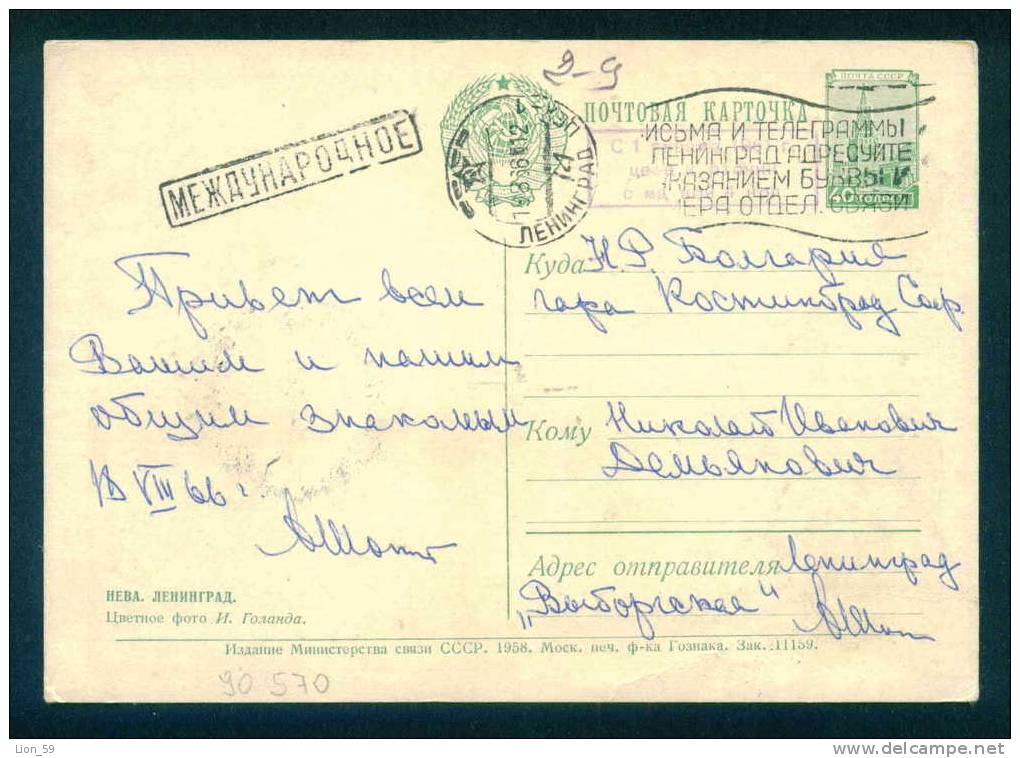 2-9
ПОЧТОВАЯ КАРТОЧКА
ПОЧТА СССР
40
МЕЖДУНАРОДНОЕ
ЛЕНИНГРАД
ИСЬМА И ТЕЛЕГРАММЫ
ЛЕНИНГРАД АДРЕСУЙТЕ
КАЗАНИЕМ БУКВЫ И
МЕРА ОТДЕЛ. СВЯЗИ
Привет всем
Вашим и нашим
общим знакомым
18 VIII 66 г
НЕВА. ЛЕНИНГРАД.
Цветное фото И. Голанда.
Куда Н.Р. Болгария
гара Костинброд Соф.
Кому Николай Иванович
Демьянович
Адрес отправителя Ленинград
„Выборгская"
Издание Министерства связи СССР. 1958. Моск. печ. ф-ка Гознака. Зак. 11159.
90 570
Lion_59
www.delcampe.net